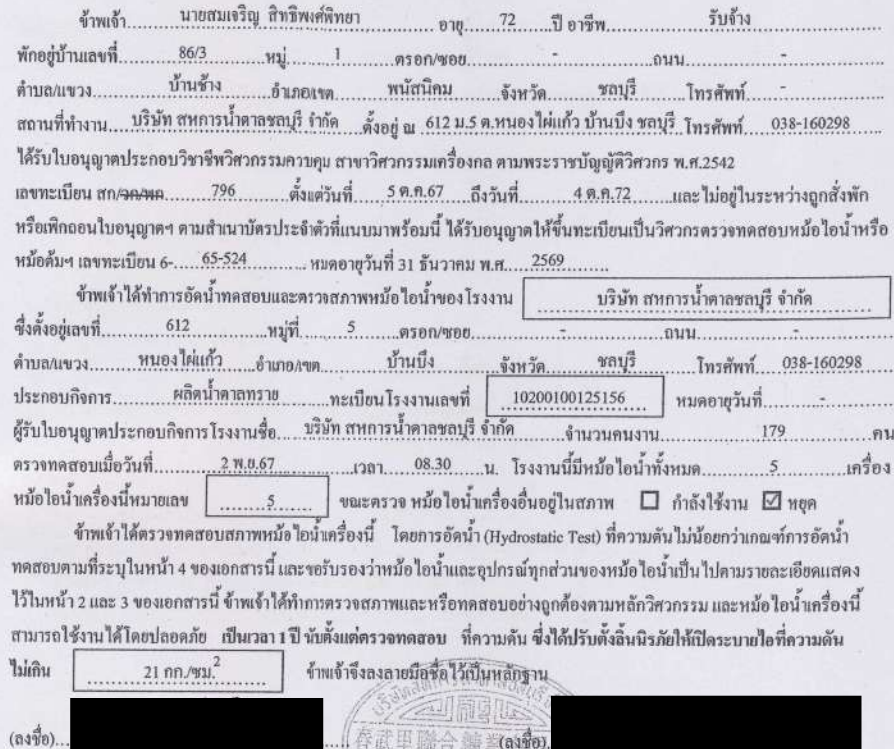 ข้าพเจ้า นายสมเจริญ สิทธิพงศ์พิทยา อายุ 72 ปี อาชีพ รับจ้าง
พักอยู่บ้านเลขที่ 86/3 หมู่ 1 ตรอก/ซอย - ถนน -
ตำบล/แขวง บ้านช้าง อำเภอเขต พนัสนิคม จังหวัด ชลบุรี โทรศัพท์ -
สถานที่ทำงาน บริษัท สหการน้ำตาลชลบุรี จำกัด ตั้งอยู่ ณ 612 ม.5 ต.หนองไผ่แก้ว บ้านบึง ชลบุรี โทรศัพท์ 038-160298
ได้รับใบอนุญาตประกอบวิชาชีพวิศวกรรมควบคุม สาขาวิศวกรรมเครื่องกล ตามพระราชบัญญัติวิศวกร พ.ศ.2542
เลขทะเบียน สก/วก/พก 796 ตั้งแต่วันที่ 5 ต.ค.67 ถึงวันที่ 4 ต.ค.72 และไม่อยู่ในระหว่างถูกสั่งพัก
หรือเพิกถอนใบอนุญาตฯ ตามสำเนาบัตรประจำตัวที่แนบมาพร้อมนี้ ได้รับอนุญาตให้ขึ้นทะเบียนเป็นวิศวกรตรวจทดสอบหม้อไอน้ำหรือ
หม้อต้มฯ เลขทะเบียน 6- 65-524 หมดอายุวันที่ 31 ธันวาคม พ.ศ. 2569
ข้าพเจ้าได้ทำการอัดน้ำทดสอบและตรวจสภาพหม้อไอน้ำของโรงงาน บริษัท สหการน้ำตาลชลบุรี จำกัด
ซึ่งตั้งอยู่เลขที่ 612 หมู่ที่ 5 ตรอก/ซอย - ถนน -
ตำบล/แขวง หนองไผ่แก้ว อำเภอ/เขต บ้านบึง จังหวัด ชลบุรี โทรศัพท์ 038-160298
ประกอบกิจการ ผลิตน้ำตาลทราย ทะเบียนโรงงานเลขที่ 10200100125156 หมดอายุวันที่ -
ผู้รับใบอนุญาตประกอบกิจการโรงงานชื่อ บริษัท สหการน้ำตาลชลบุรี จำกัด จำนวนคนงาน 179 คน
ตรวจทดสอบเมื่อวันที่ 2 พ.ย.67 เวลา 08.30 น. โรงงานนี้มีหม้อไอน้ำทั้งหมด 5 เครื่อง
หม้อไอน้ำเครื่องนี้หมายเลข 5 ขณะตรวจ หม้อไอน้ำเครื่องอื่นอยู่ในสภาพ ☐ กำลังใช้งาน ☑ หยุด
ข้าพเจ้าได้ตรวจทดสอบสภาพหม้อไอน้ำเครื่องนี้ โดยการอัดน้ำ (Hydrostatic Test) ที่ความดันไม่น้อยกว่าเกณฑ์การอัดน้ำ
ทดสอบตามที่ระบุในหน้า 4 ของเอกสารนี้ และขอรับรองว่าหม้อไอน้ำและอุปกรณ์ทุกส่วนของหม้อไอน้ำเป็นไปตามรายละเอียดแสดง
ไว้ในหน้า 2 และ 3 ของเอกสารนี้ ข้าพเจ้าได้ทำการตรวจสภาพและหรือทดสอบอย่างถูกต้องตามหลักวิศวกรรม และหม้อไอน้ำเครื่องนี้
สามารถใช้งานได้โดยปลอดภัย เป็นเวลา 1 ปี นับตั้งแต่ตรวจทดสอบ ที่ความดัน ซึ่งได้ปรับตั้งลิ้นนิรภัยให้เปิดระบายไอที่ความดัน
ไม่เกิน 21 กก./ซม.² ข้าพเจ้าจึงลงลายมือชื่อไว้เป็นหลักฐาน
(ลงชื่อ) (ลงชื่อ)